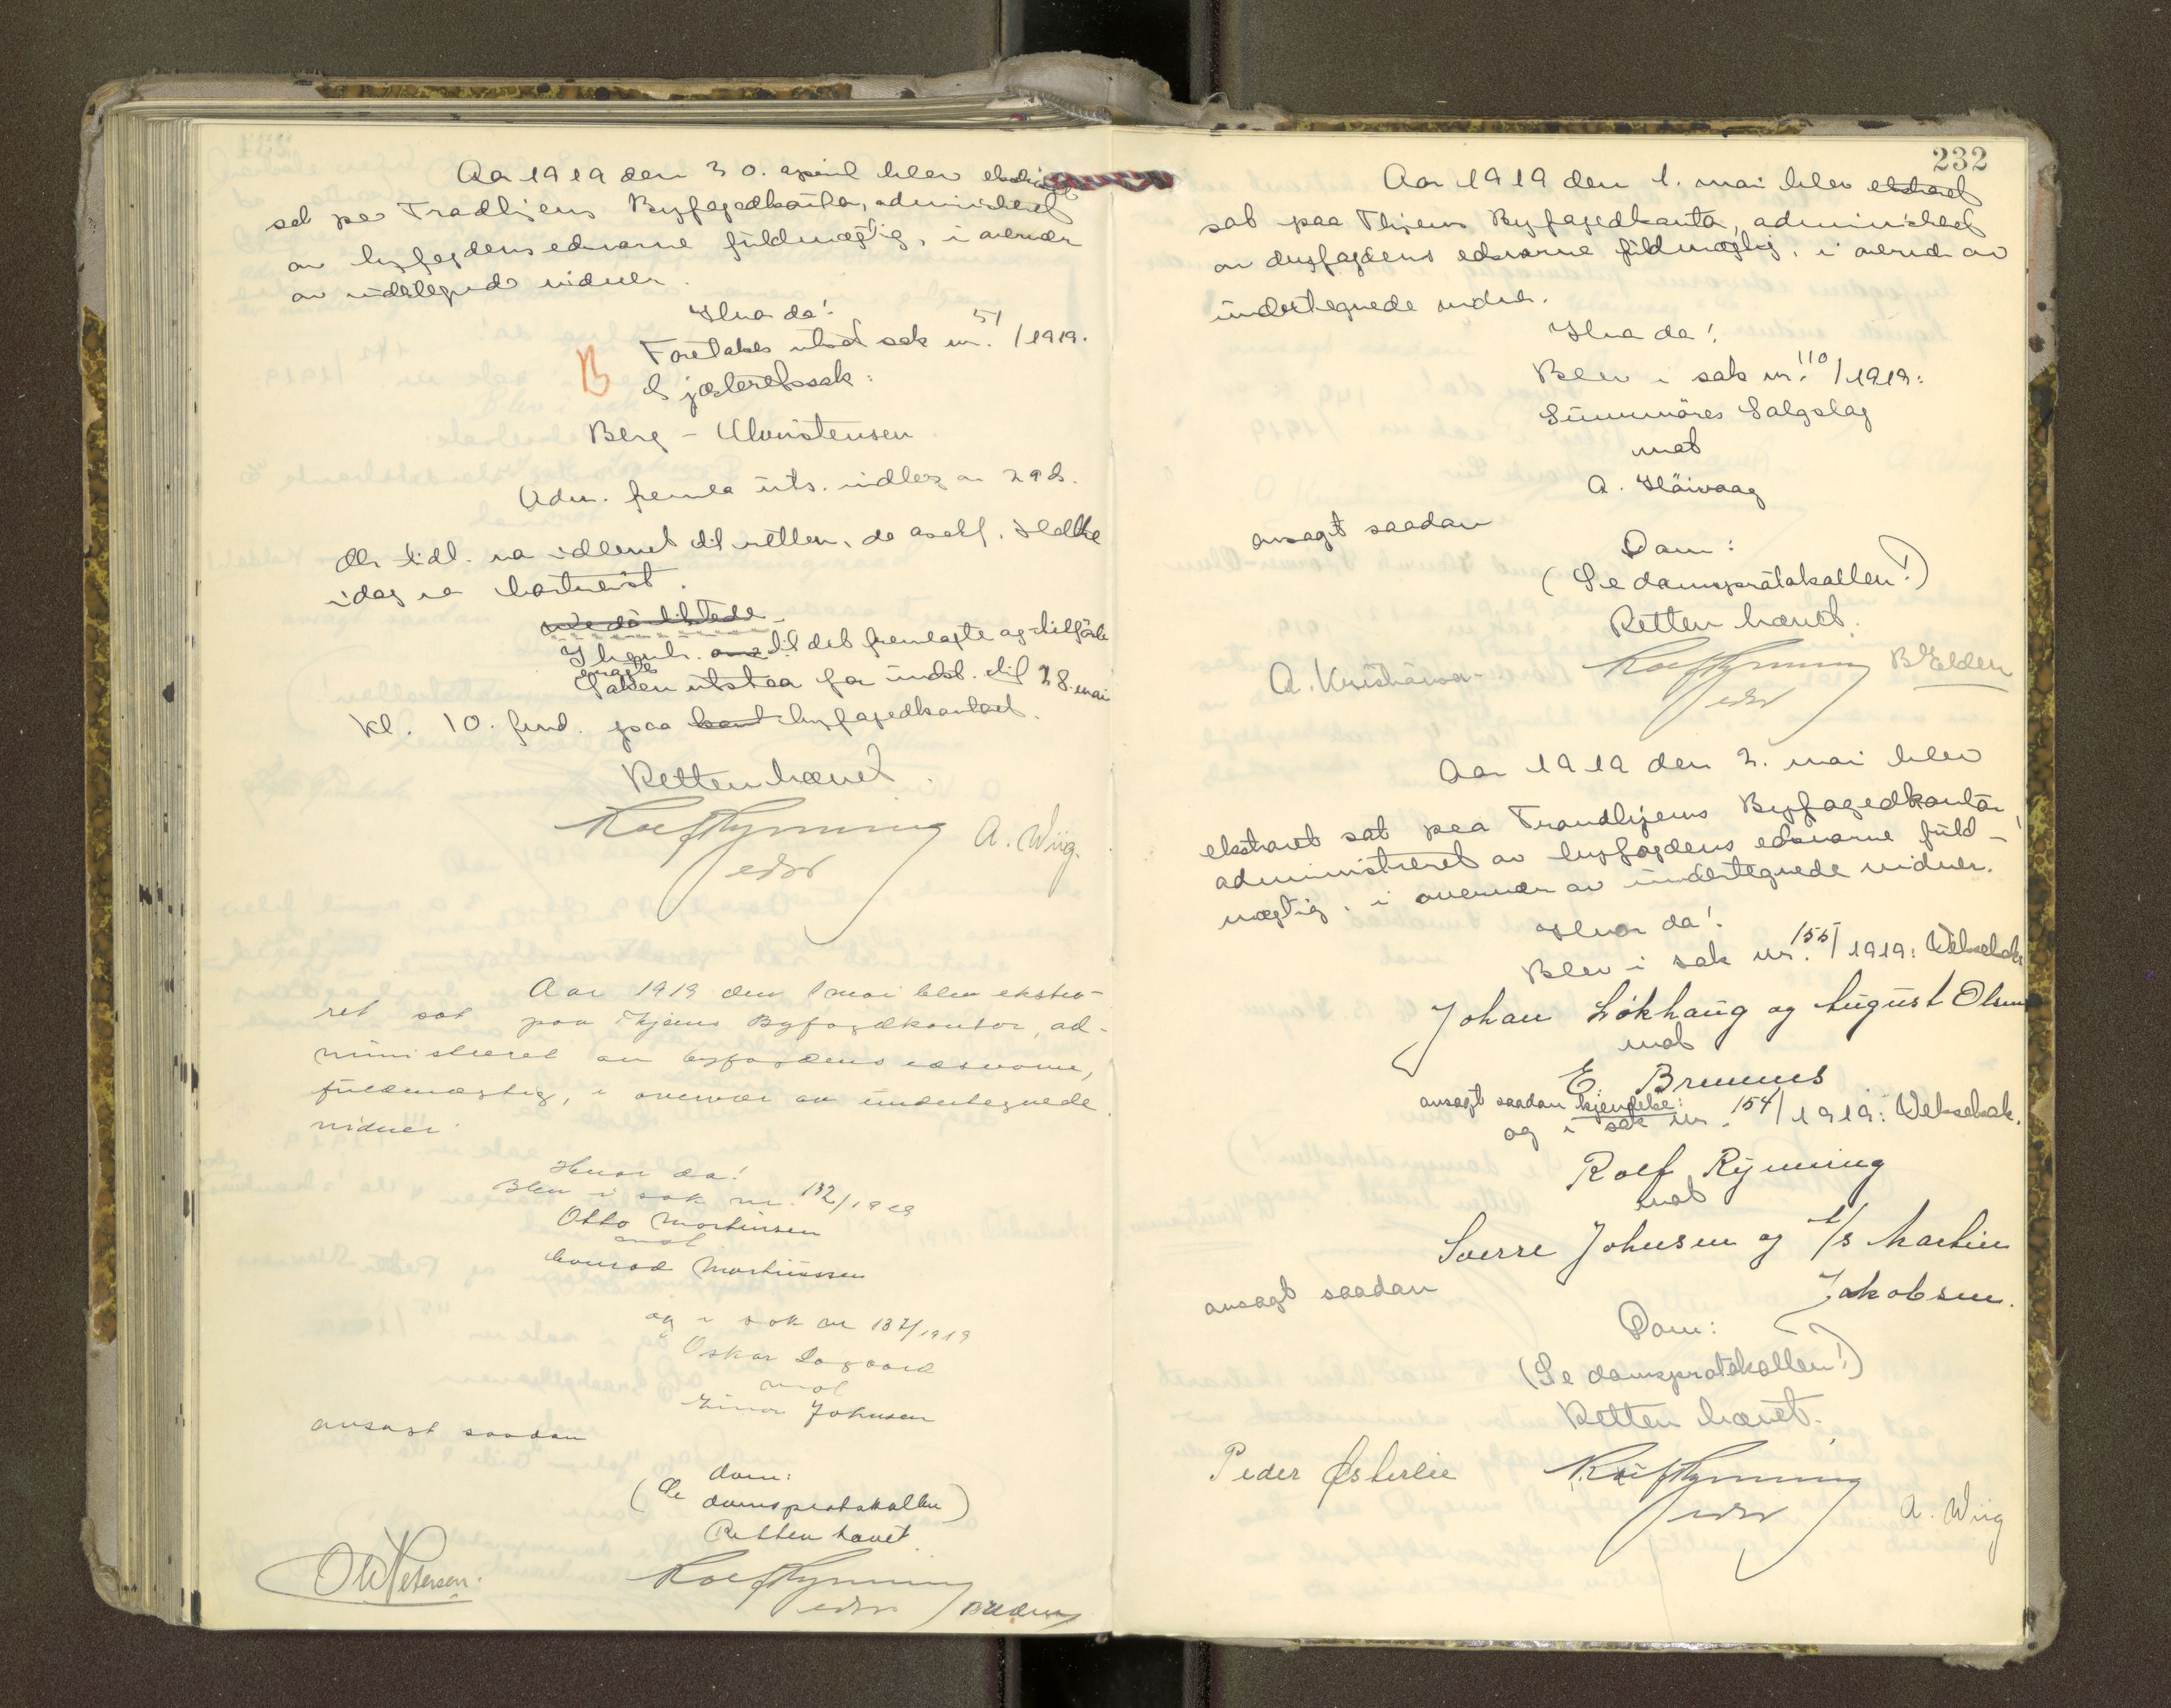 Aar 1919 den 30. april blev ekstraret
sat paa Trondhjems Byfogedkontor, administreret
av byfogdens edsvorne fuldmægtig, i overvær
av undertegnede vidner.
Hvor da!
Foretokes utsat sak nr. 51/1919.
B
Gjesteretssak:
Berg - Christensen
Adm. fremla uts. indlæg av 29 ds.
idag er bortreist.
Ihenh. til det fremlagte og tilførte
saken utstaa for indst. til 28. mai
kl. 10. fmd. paa byfogedkontoret.
Retten hævet.
Rolf Rynning
edsv
A. Wiig.
Aar 1919 den 1 mai blev ekstra-
ret sat paa Thjems Byfogdkontor, ad-
ministreret av byfogdens edsvorne,
fuldmægtig, i overvær av undertegnede
vidner.
Hvor da!
Blev i sak nr. 132/1919
Otto Mortinsen
mot
Konrad Martinssen
og i sak nr 137/1919
Oskar Dagaard
mot
Einar Johnsen
avsagt saadan
dom:
(Se domsprotokollen)
Retten hævet.
Petersen.
Rolf Rynning
edsv
232
Aar 1919 den 1. mai blev ekstraret
sat paa Thjems Byfogedkontor, administreret
av byfogdens edsvorne fuldmægtig, i overvær av
undertegnede vidner.
Hvor da!
Blev i sak nr. 110/1919:
Sunnmøres Salgslag
mot
A. Håivaag
avsagt saadan
Dom:
(Se domsprotokollen!)
Retten hævet.
A. Kristiansen
Rolf Rynning
edsv
B Elden
Aar 1919 den 2. mai blev
ekstraret sat paa Trondhjems Byfogedkontor,
administreret av byfogdens edsvorne fuld-
mægtig, i overvær av undertegnede vidner.
Hvor da!
Blev i sak nr. 155/1919: Vekselsak
Johan Løkhaug og August Olsen
mot
E. Brunæs
avsagt saadan kjendelse:
og i sak nr. 154/1919: Vekselsak.
Rolf Rynning
mot
Sverre Johnsen og A/s Martin
Jakobsen.
avsagt saadan
Dom:
(Se domsprotokollen!)
Retten hævet.
Peder Østerlie
Rolf Rynning
edsv
A. Wiig